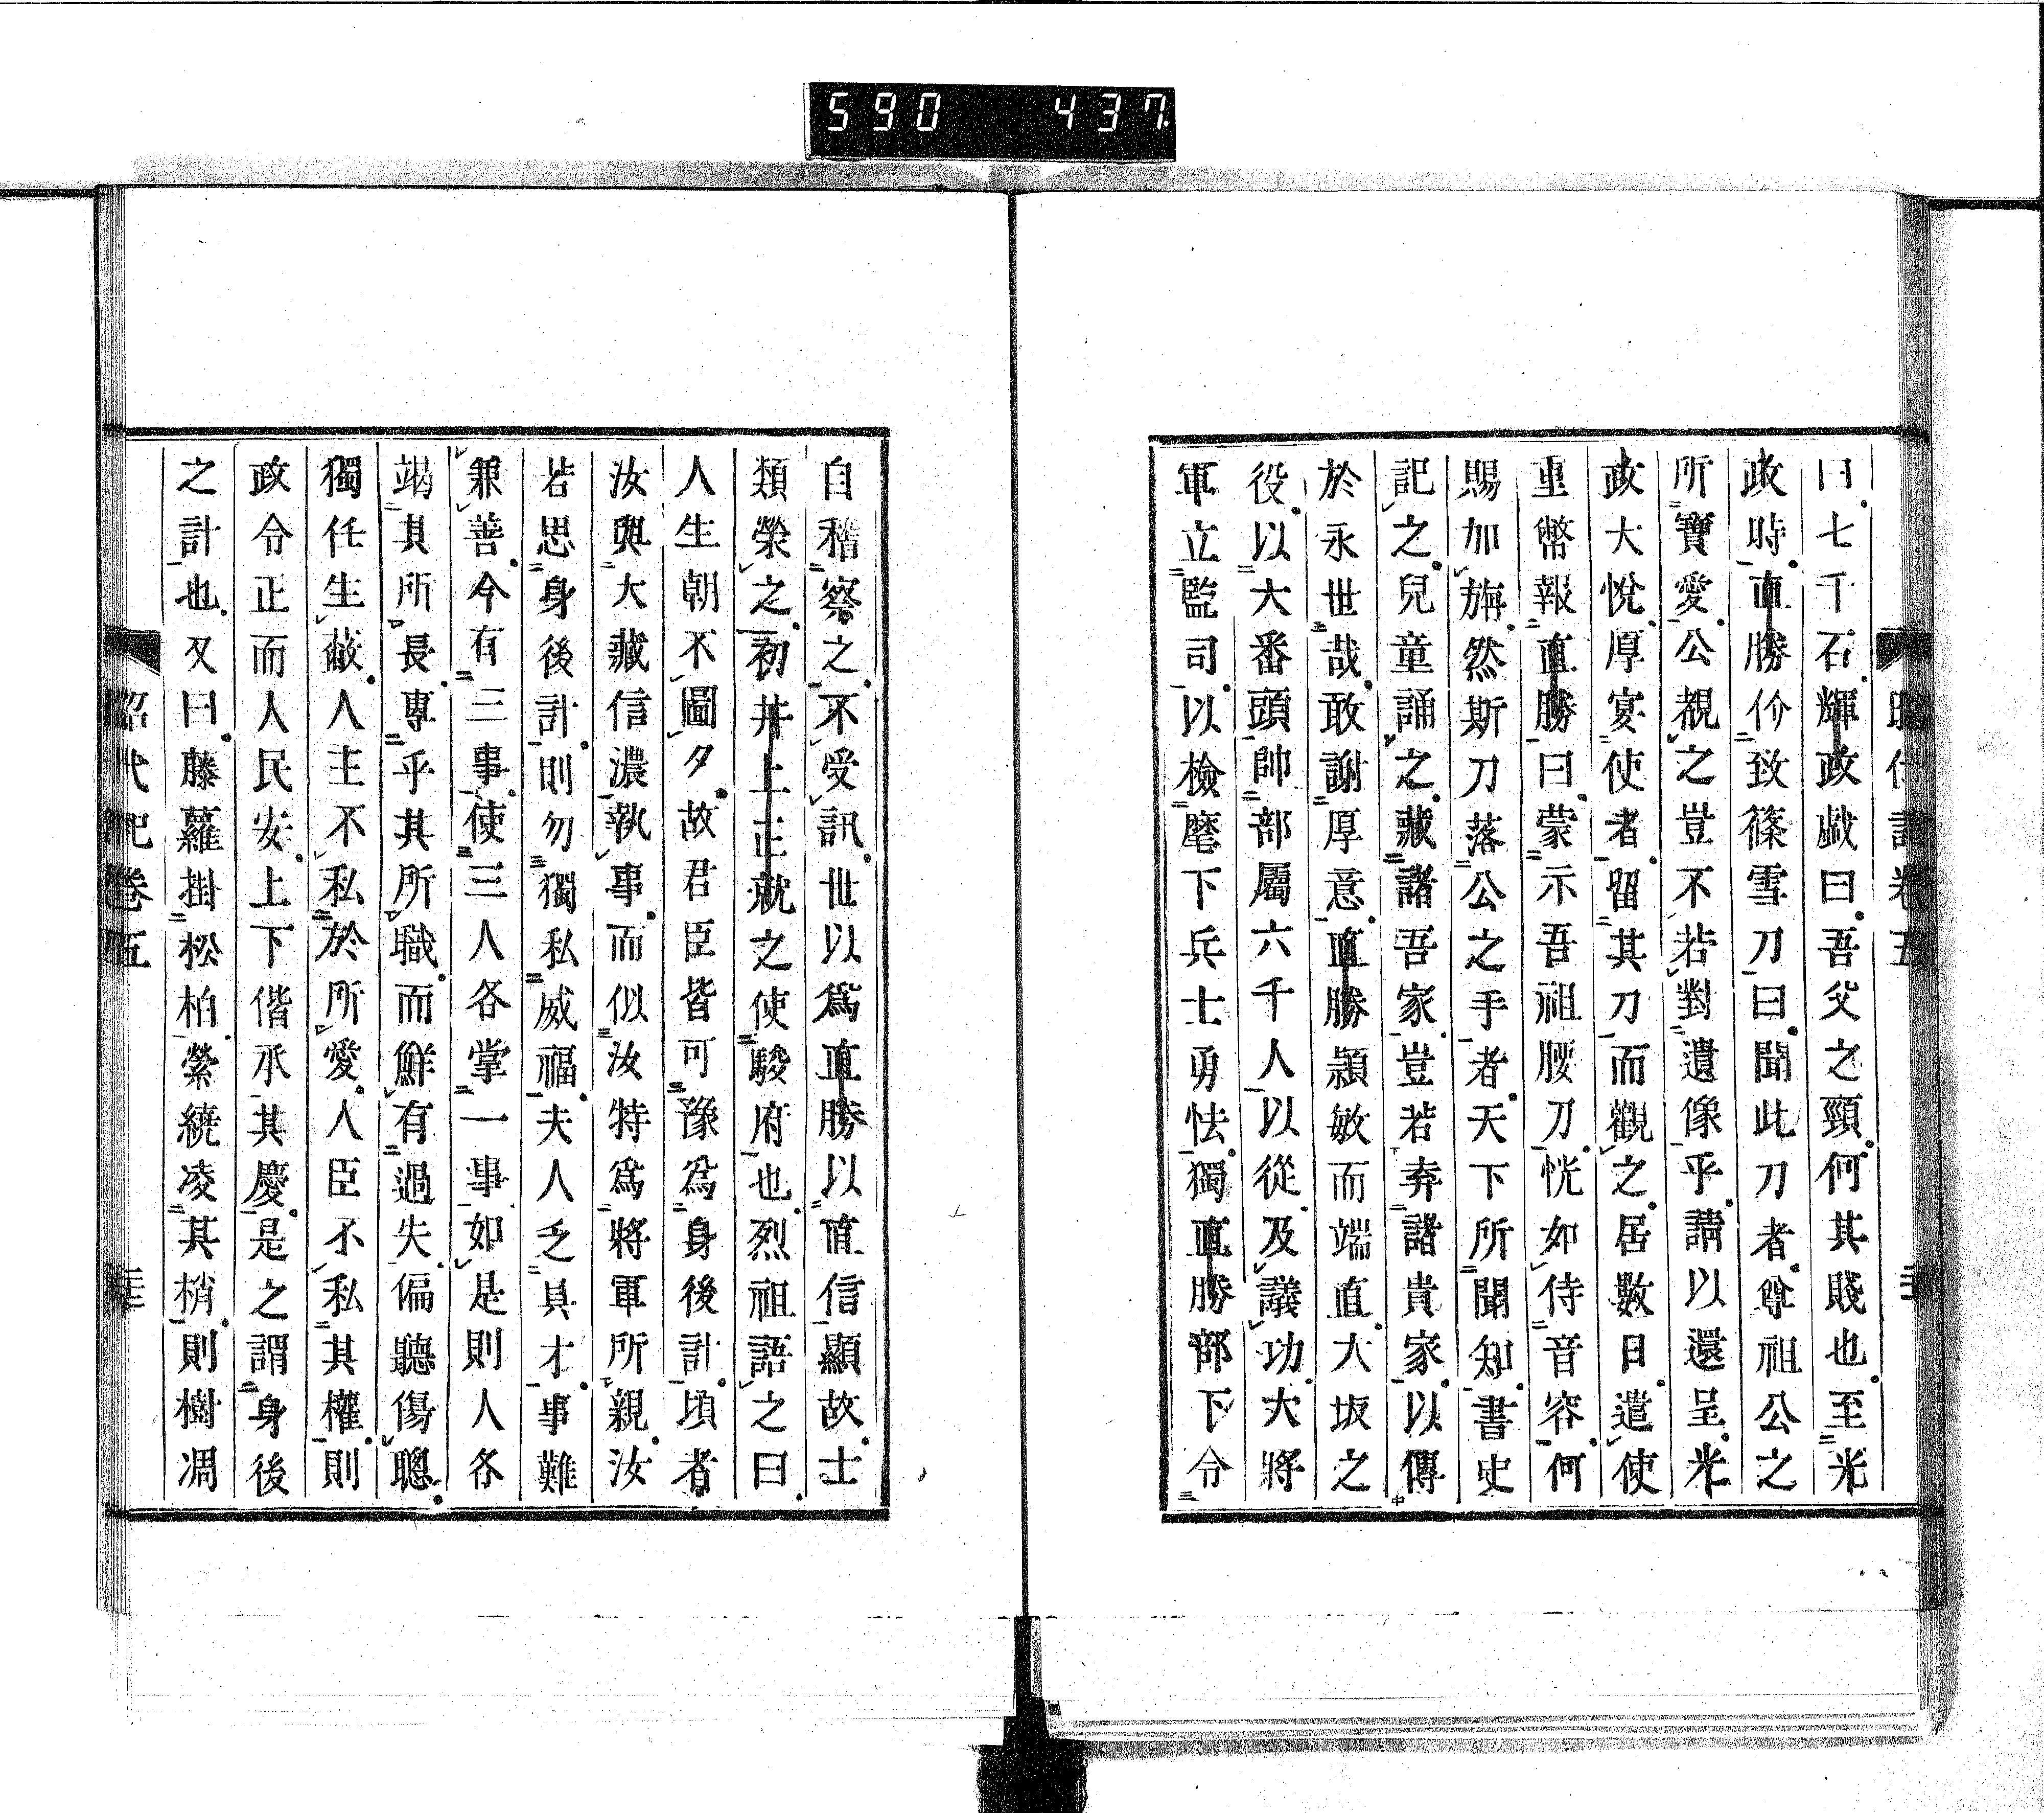 590 437
昭代記卷五
曰七千石輝政戯曰吾父之頸何其賤也至光
政時直勝价致篠雪刀曰聞此刀者尊祖公之
所寶愛公覩之豈不若對遺像乎請以還呈光
政大悅厚宴使者留其刀而觀之居數日遣使
重幣報直勝曰蒙示吾祖腰刀恍如侍音容何
賜加旃然斯刀落公之手者天下所聞知書史
記之兒童誦之藏諸吾家豈若弆諸貴家以傳
於永世哉敢謝厚意直勝頴敏而端直大坂之
役以大番頭帥部屬六千人以從及議功大將
軍立監司以檢麾下兵士勇怯獨直勝部下令
自稽察之不受訊世以爲直勝以直信顯故士
類榮之初井上正就之使駿府也烈祖語之曰
人生朝不圖夕故君臣皆可豫爲身後計頃者
汝與大藏信濃執事而似汝特爲將軍所親汝
若思身後計則勿獨私威福夫人乏具才事難
兼善今有三事使三人各掌一事如是則人各
竭其所長專乎其所職而鮮有過失偏聽傷聰
獨任生蔽人主不私於所愛人臣不私其權則
政令正而人民安上下偕承其慶是之謂身後
之計也又曰藤蘿掛松柏縈繞凌其梢則樹凋
昭代記卷五